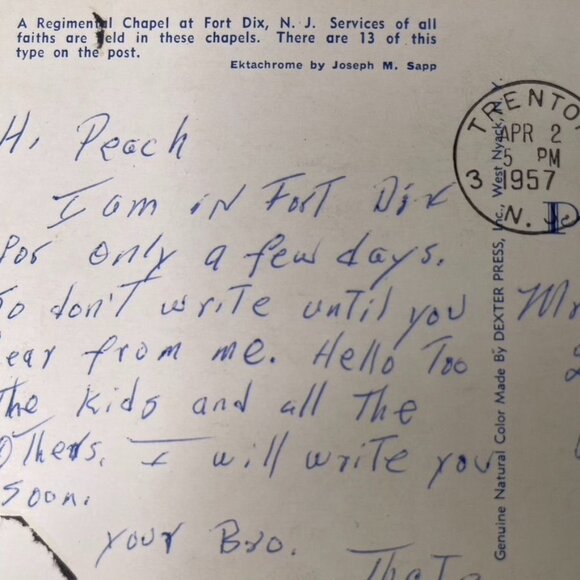 A Regimental Chapel at Fort Dix, N. J. Services of all
faiths are held in these chapels. There are 13 of this
type on the post.
Ektachrome by Joseph M. Sapp
TRENTON
APR 2
5 PM
3 1957
N. J.
Genuine Natural Color Made By DEXTER PRESS, Inc., West Nyack, N. Y.
Hi Peach
I am in Fort Dix
for only a few days.
So don't write until you
hear from me. Hello Too
The kids and all The
OThers. I will write you
soon.
your Bro.